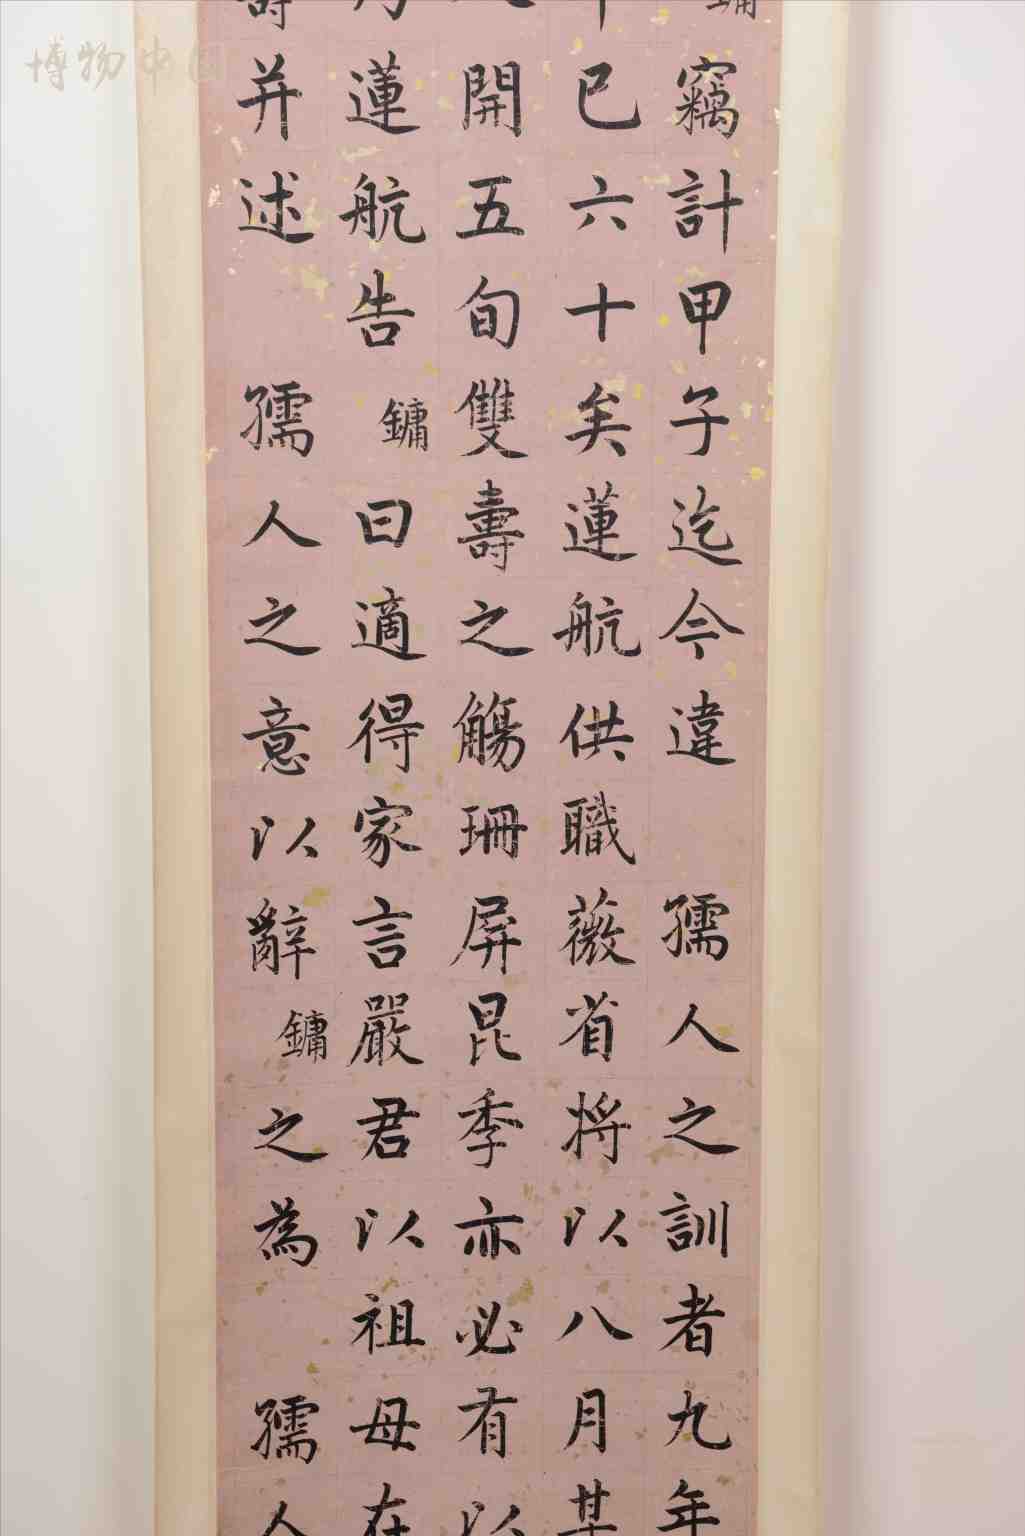 竊計甲子迄今違 孺人之訓者九年
已六十矣蓮航供職薇省將以八月某
開五旬雙壽之觴珊屏昆季亦必有以
蓮航告 鏞曰適得家言嚴君以祖母在
壽并述 孺人之意以辭鏞之為 孺人
博物中国